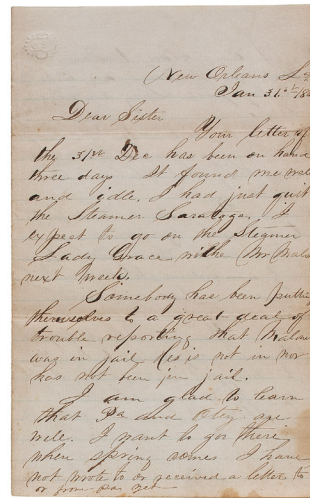 New Orleans La
Jan 31st /8
Dear Sister
Your letter of
the 31st Dec has been on hand
three days It found me well
and idle. I had just quit
the Steamer Saratoga. I
expect to go on the Steamer
Lady Grace with Mr
next week.
Somebody has been putting
themselves to a great deal of
trouble reporting that
was in jail is not in nor
has not been in jail.
I am glad to learn
that Pa and are
well. I want to go there
when spring comes. I have
not wrote to or received a letter to
or from yet